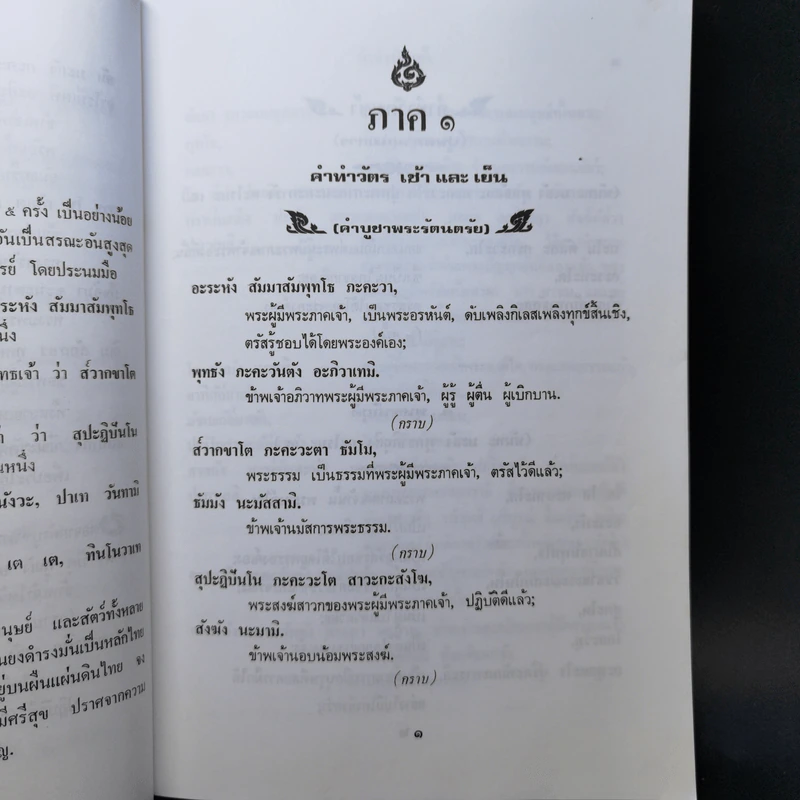 ๕ ครั้ง เป็นอย่างน้อย
วันเป็นสรณะอันสูงสุด
รย์ โดยประนมมือ
ระหัง สัมมาสัมพุทโธ
นึ่ง
ทธเจ้า ว่า ส๎วากขาโต
ว่า สุปะฏิปันโน
นหนึ่ง
นังวะ, ปาเท วันทามิ
เต เต, ทินโนวาเท
นุษย์ และสัตว์ทั้งหลาย
นยงดำรงมั่นเป็นหลักไทย
ยู่บนผืนแผ่นดินไทย จง
มีศรีสุข ปราศจากความ
ญ.
ภาค ๑
คำทำวัตร เช้า และ เย็น
(คำบูชาพระรัตนตรัย)
อะระหัง สัมมาสัมพุทโธ ภะคะวา,
พระผู้มีพระภาคเจ้า, เป็นพระอรหันต์, ดับเพลิงกิเลสเพลิงทุกข์สิ้นเชิง,
ตรัสรู้ชอบได้โดยพระองค์เอง;
พุทธัง ภะคะวันตัง อะภิวาเทมิ.
ข้าพเจ้าอภิวาทพระผู้มีพระภาคเจ้า, ผู้รู้ ผู้ตื่น ผู้เบิกบาน.
(กราบ)
ส๎วากขาโต ภะคะวะตา ธัมโม,
พระธรรม เป็นธรรมที่พระผู้มีพระภาคเจ้า, ตรัสไว้ดีแล้ว;
ธัมมัง นะมัสสามิ.
ข้าพเจ้านมัสการพระธรรม.
(กราบ)
สุปะฏิปันโน ภะคะวะโต สาวะกะสังโฆ,
พระสงฆ์สาวกของพระผู้มีพระภาคเจ้า, ปฏิบัติดีแล้ว;
สังฆัง นะมามิ.
ข้าพเจ้านอบน้อมพระสงฆ์.
(กราบ)
๑